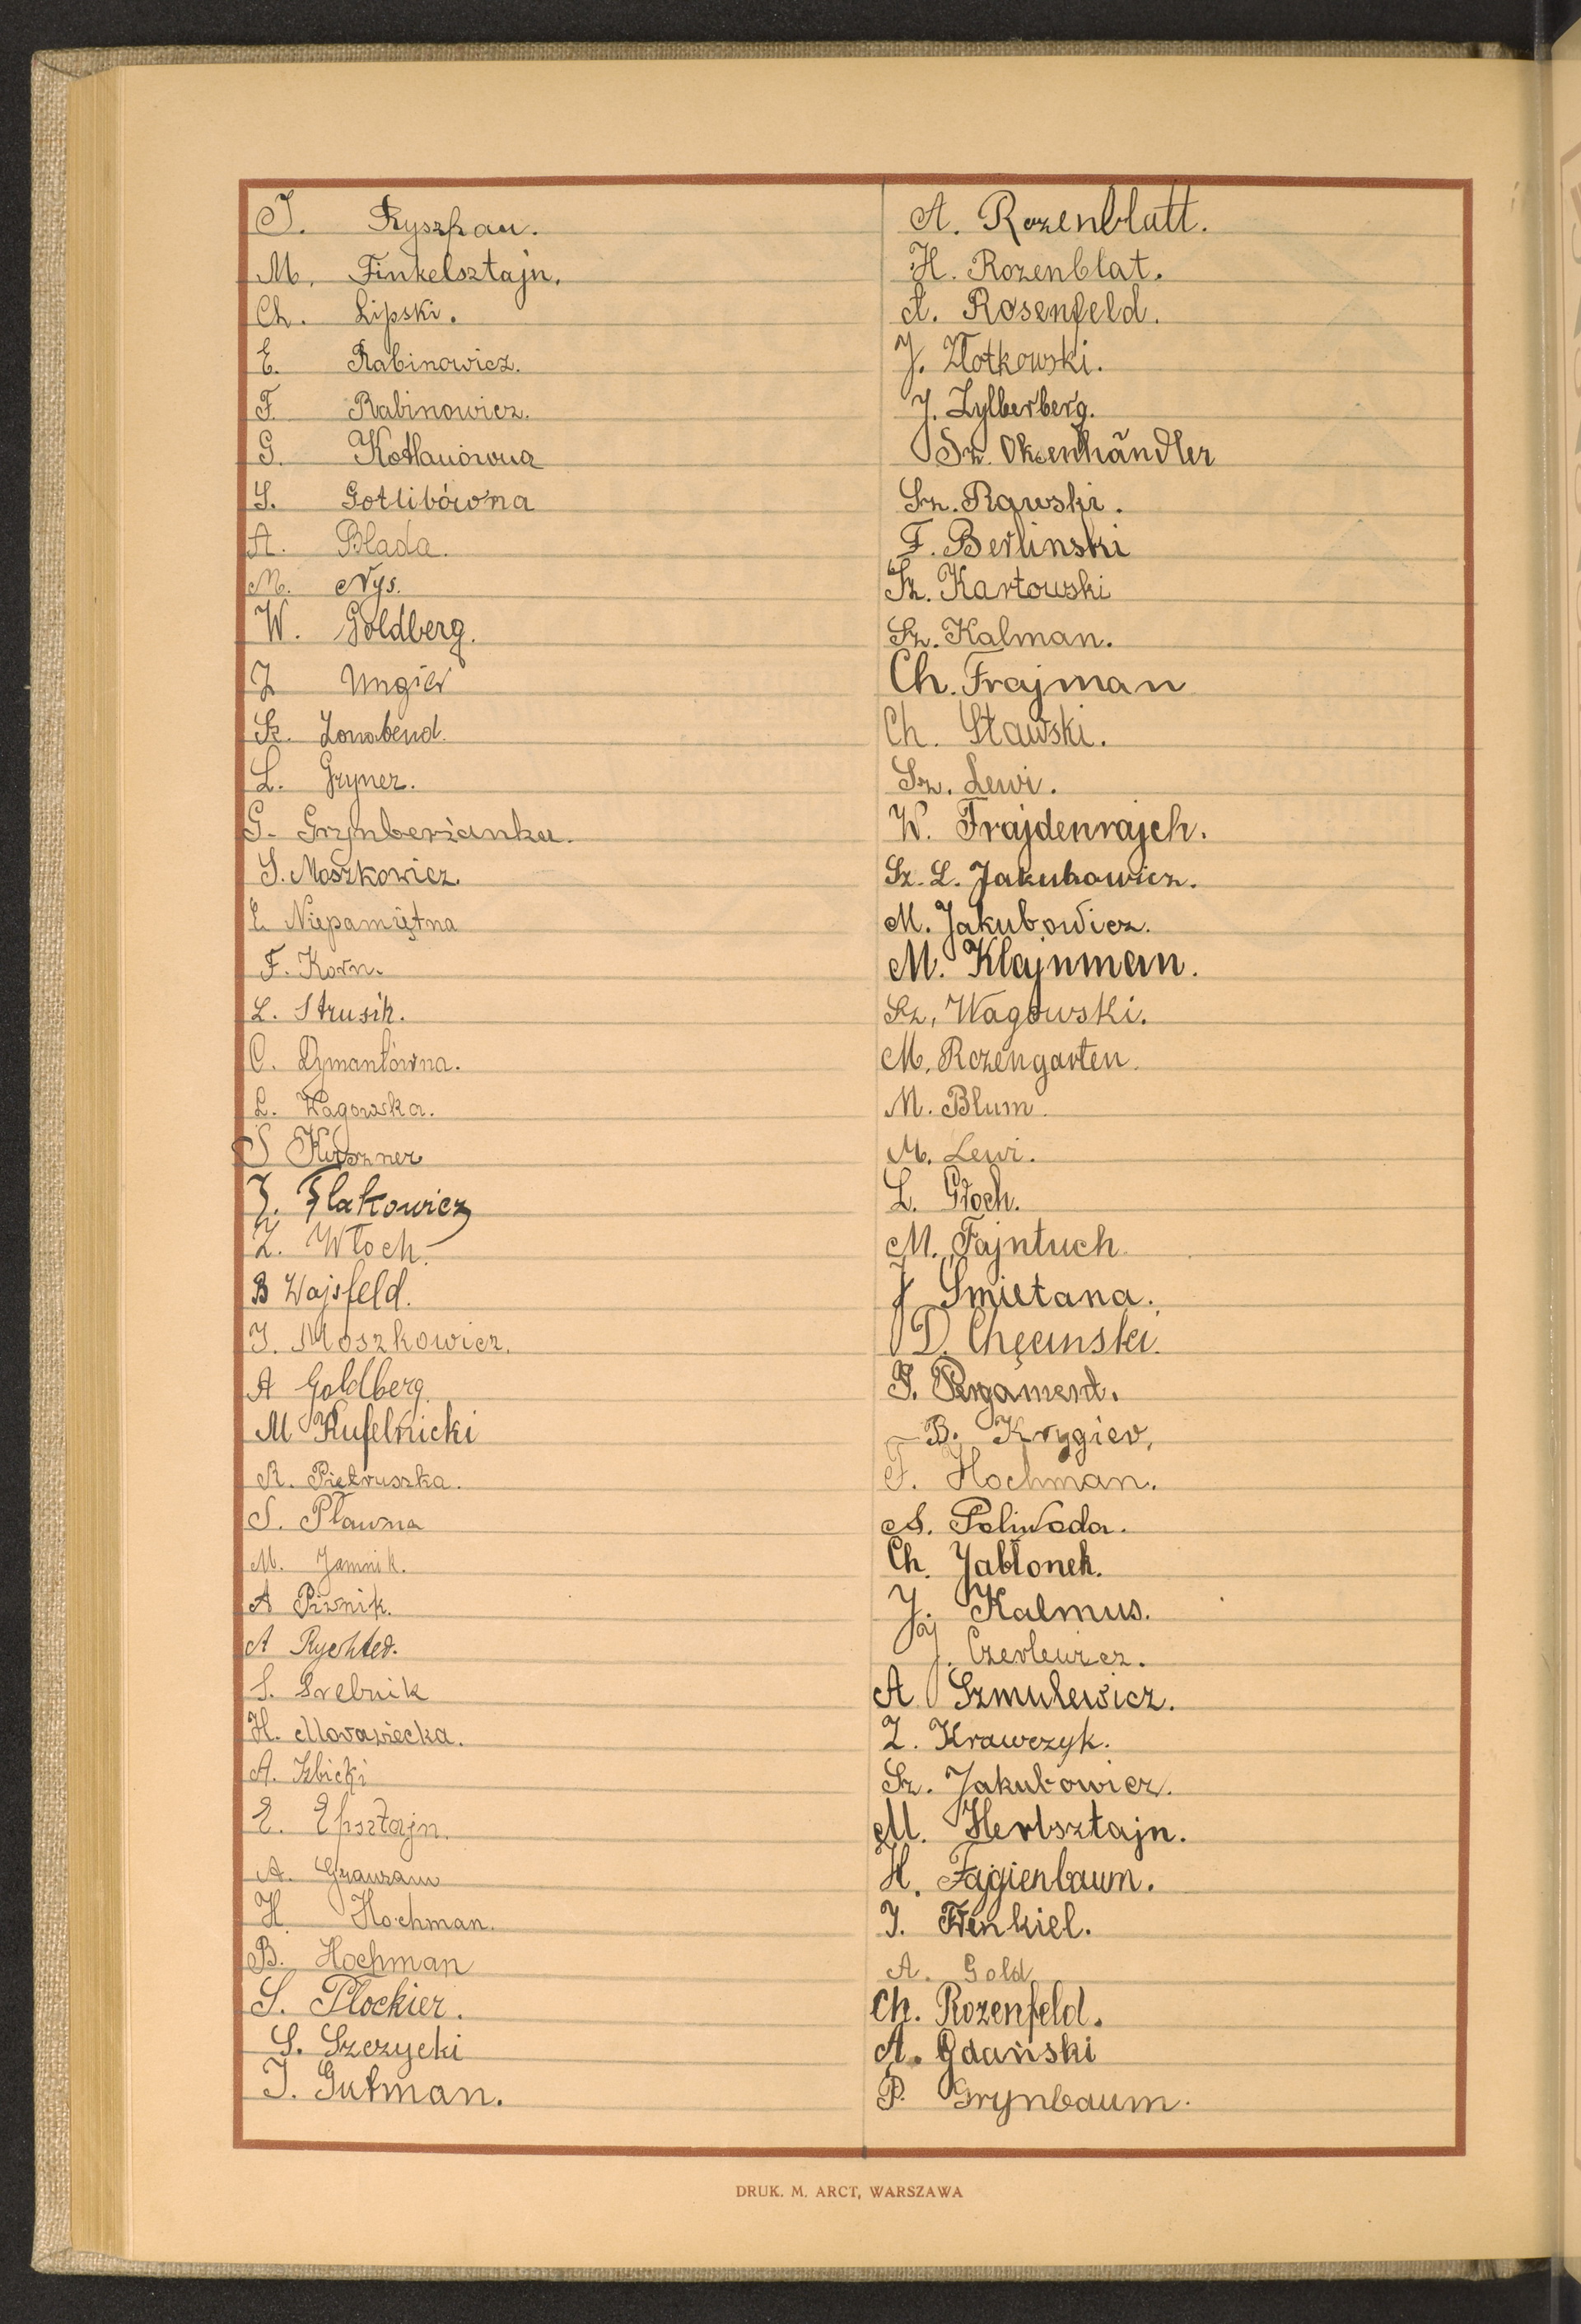 J. Ryszpan.
M. Finkelsztajn.
Ch. Lipski.
E. Rabinowicz.
F. Rabinowicz.
G. Kotlanówna
S. Gotlibówna
A. Blada.
M. Nys.
W. Goldberg.
J Ungier
Sz. Zonabend.
L. Gryner.
G. Grynberżanka.
S. Moszkowicz.
E. Niepamiętna
F. Korn.
L. Strusik.
C. Dymantówna.
L. Wagowska.
S Kuszner
J. Flakowicz
Z. Włoch.
B Wajsfeld.
J. Moszkowicz.
A Goldberg
M Kufelnicki
R. Pietruszka.
S. Pławna
M. Jamnik.
A Piwnik.
A Rychter.
S. Srebnik
H. Morawiecka.
A. Izbicki
E. Epsztajn.
A.
H Hochman.
B. Hochman
S. Płockier.
S. Szczycki
J. Gutman.
A. Rozenblatt.
H. Rozenblat.
A. Rosenfeld.
J. Złotkowski.
J. Zylberberg.
Sz. Oksenhändler
Sz. Rawski.
F. Berlinski
Sz. Kartowski
Sz. Kalman.
Ch. Frajman
Ch. Stawski.
Sz. Lewi.
W. Frajdenrajch.
Sz. L. Jakubowicz.
M. Jakubowicz.
M. Klajnman.
Sz. Wagowski.
M. Rozengarten.
M. Blum.
M. Lewi.
L. Głoch.
M. Fajntuch
J Śmietana.
D. Chęcinski.
P. Pergament.
B. Krygier.
F. Hochman.
A. Poliwoda.
Ch. Jabłonek.
J. Kalmus.
J. Czerlewicz.
A Szmulewicz.
Z. Krawczyk.
Sz. Jakubowicz.
M. Herbsztajn.
H. Fajgienbaum.
J. Frenkiel.
A. Gold
Ch. Rozenfeld.
A. Gdański
P. Grynbaum.
DRUK. M. ARCT, WARSZAWA